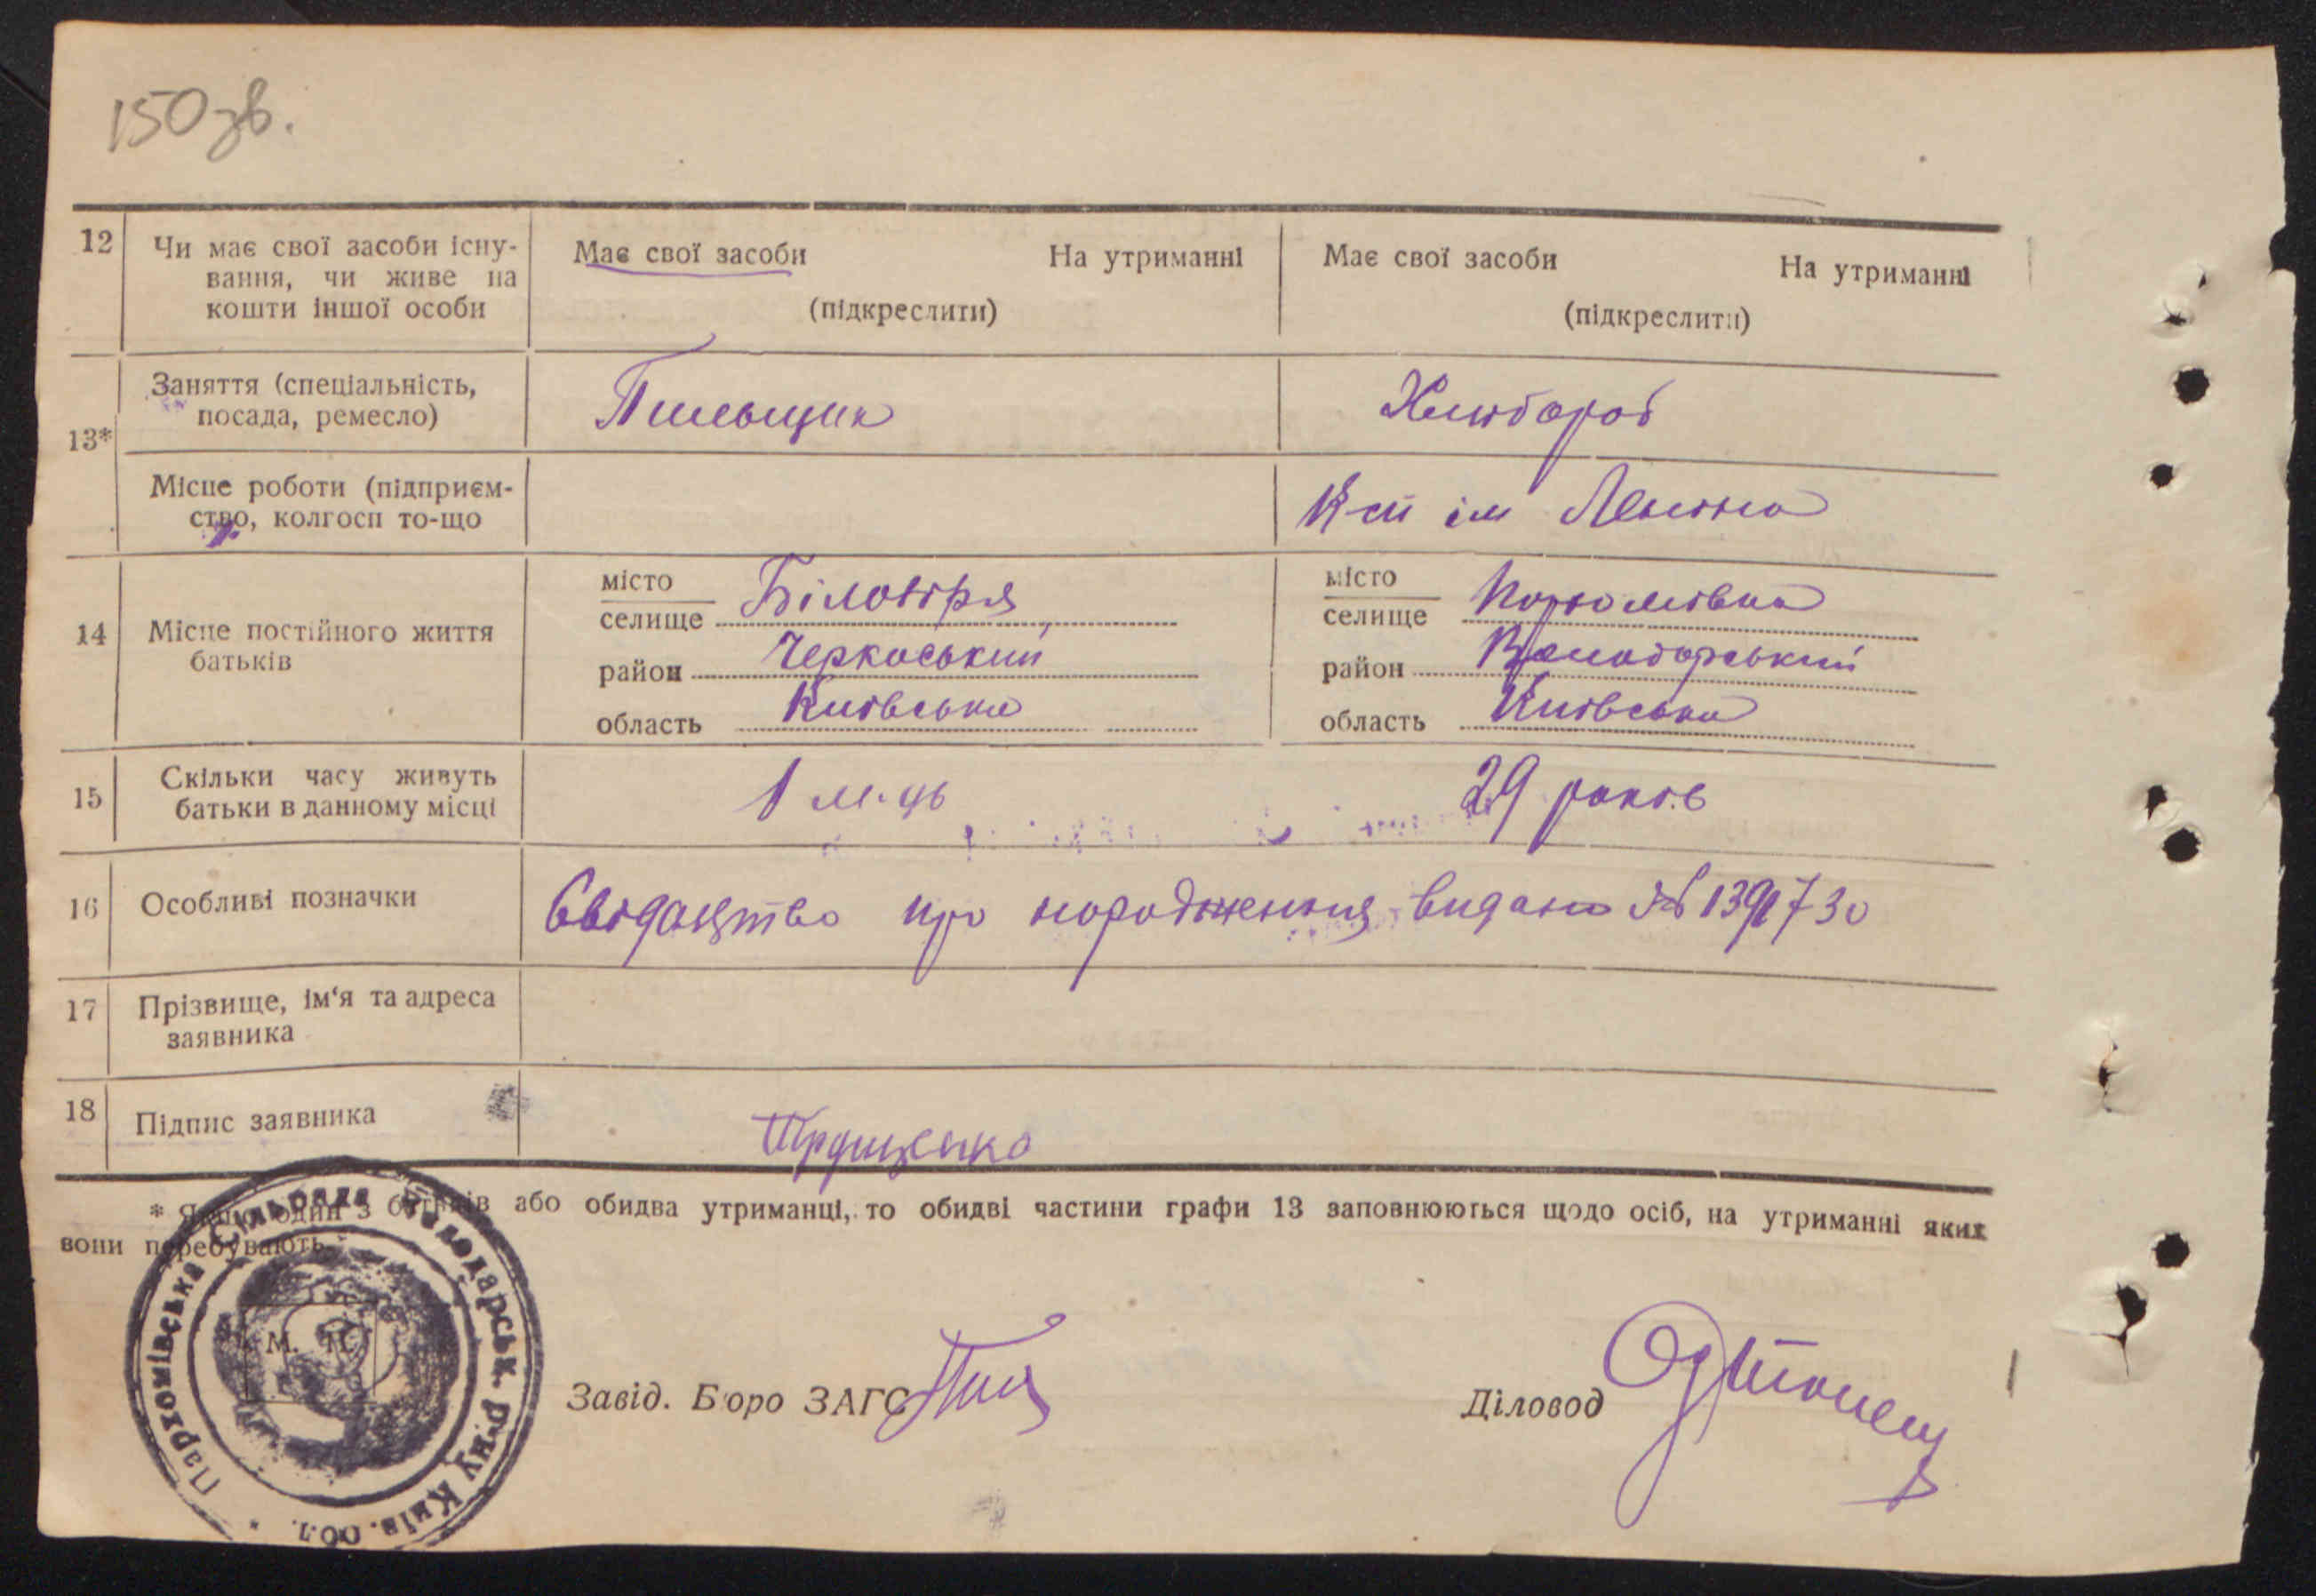 150зв.
12 Чи має свої засоби існу-
вання, чи живе на
кошти іншої особи
Має свої засоби На утриманні
(підкреслити)
Має свої засоби На утриманні
(підкреслити)
13*
Заняття (спеціальність,
посада, ремесло)
Пильщик
Хлібороб
Місце роботи (підприєм-
ство, колгосп то-що
К-сп ім Леніна
14 Місце постійного життя
батьків
місто
селище Білозіря
район Черкаський
область Київська
місто
селище Пархомівка
район Володарський
область Київська
15 Скільки часу живуть
батьки в данному місці
1 м-ць
29 років
16 Особливі позначки
Свідоцтво про народження видано № 1391730
17 Прізвище, ім‘я та адреса
заявника
18 Підпис заявника
Грущенко
* Якщо один з батьків або обидва утриманці, то обидві частини графи 13 заповнюються щодо осіб, на утриманні яких
вони перебувають.
Пархомівська Сільрада Володарськ. р-ну Київ. обл. *
М. П.
Завід. Бюро ЗАГС
Діловод